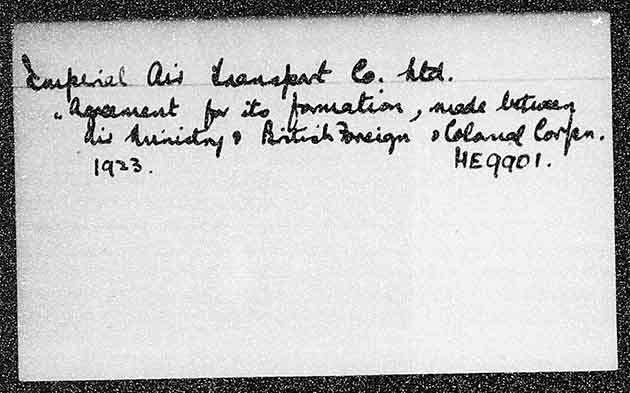 Imperial Air Transport Co. Ltd.
„ Agreement for its formation, made between
Air Ministry & British Foreign & Colonial Corpn.
1923. HE9901.